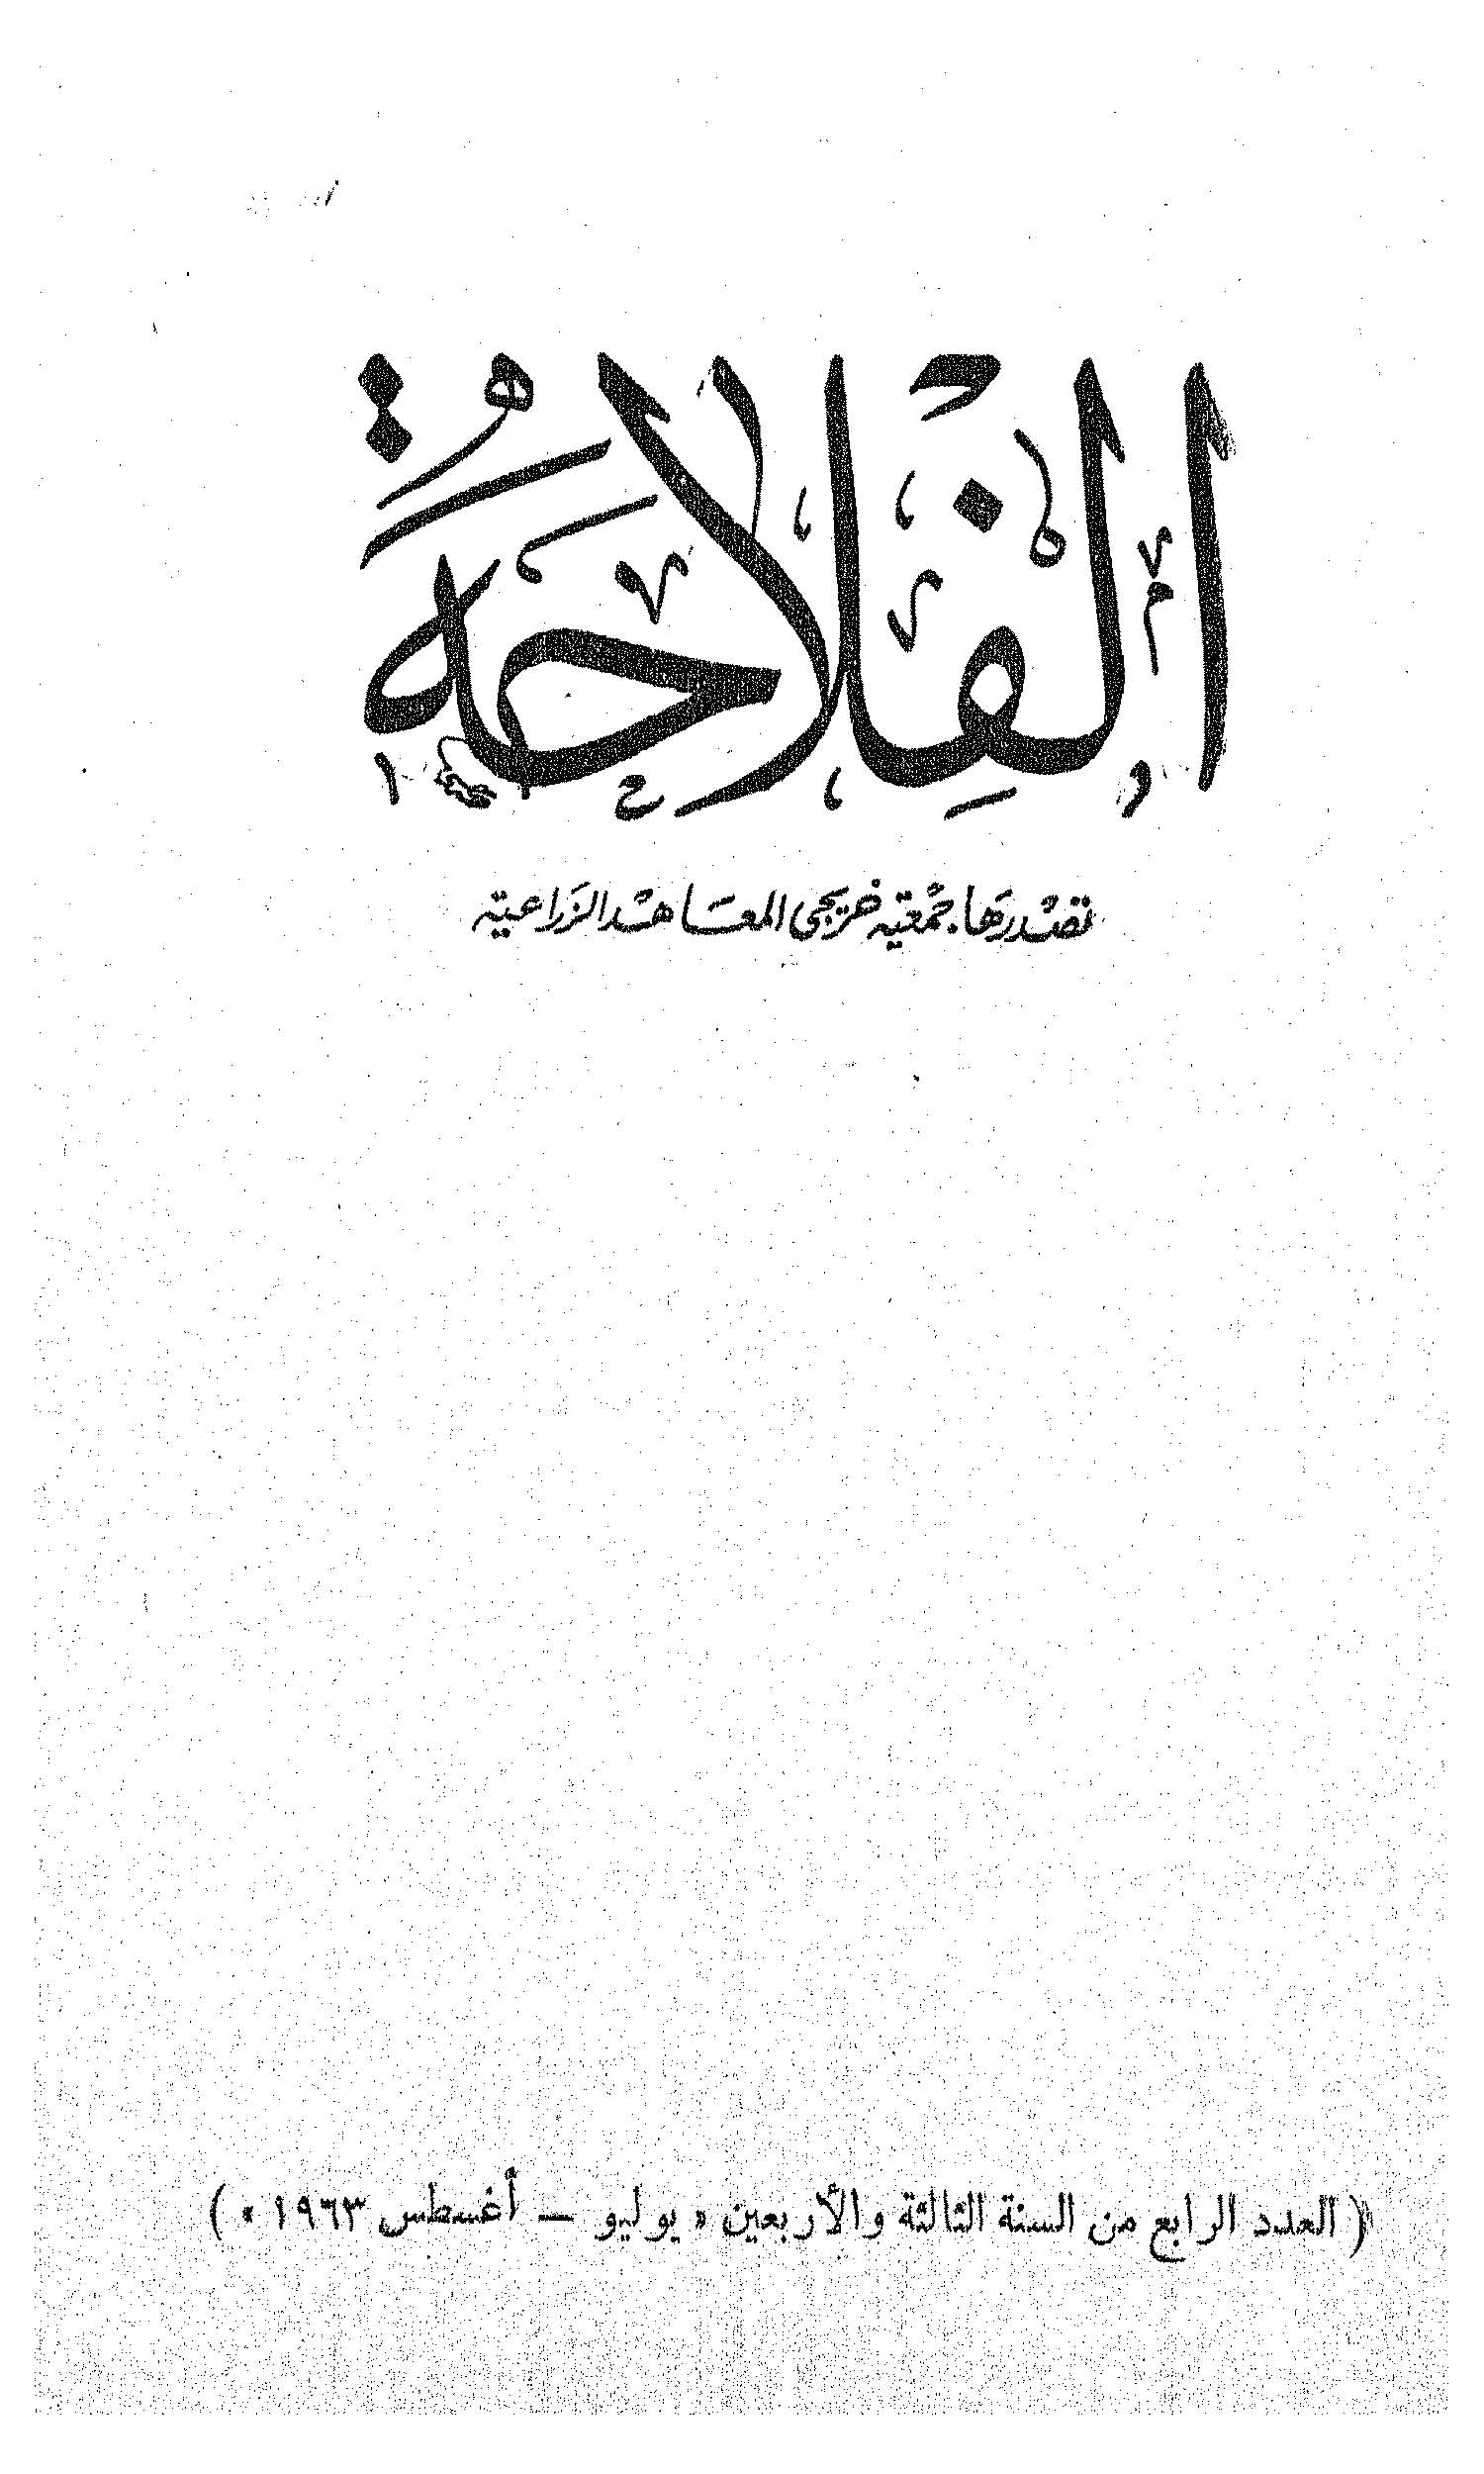 الفلاحة
تصدرها جمعية خريجى المعاهد الزراعية
( العدد الرابع من السنة الثالثة والأربعين « يوليو — أغسطس ١٩٦٣ » )